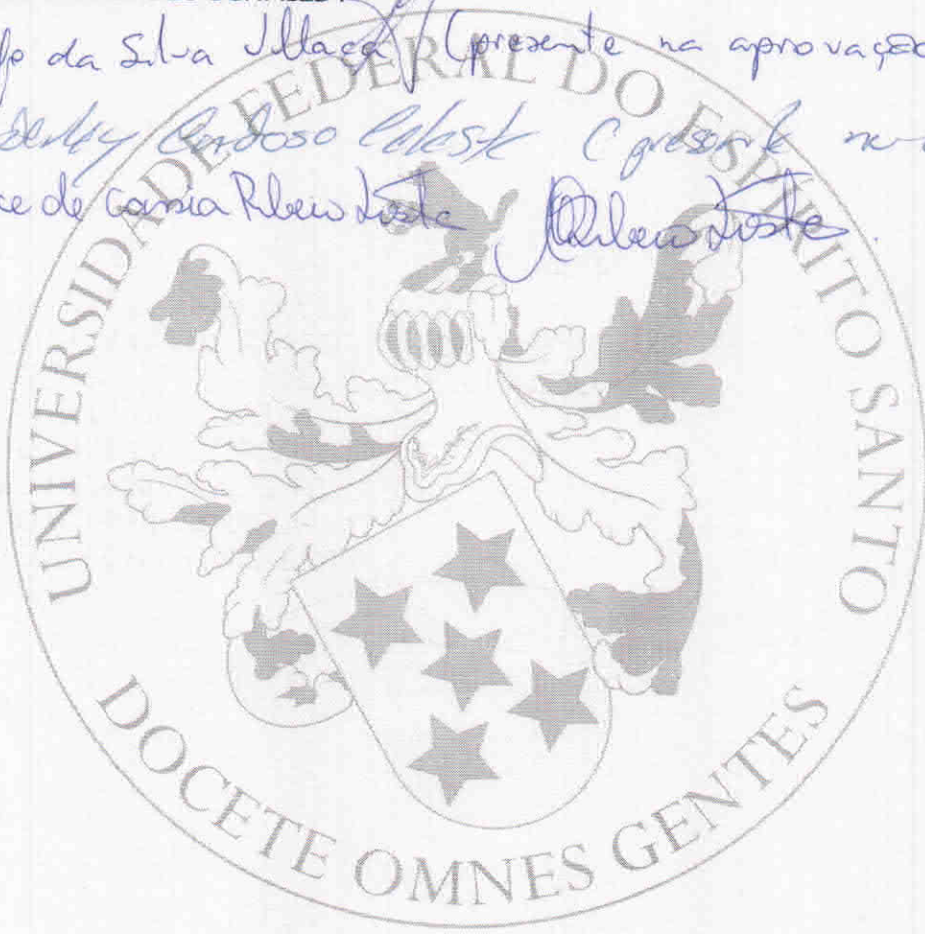 da Silva Villaça (presente na aprovação
Cardoso Celeste (presente na
ce de Cassia Ribeiro Losta
UNIVERSIDADE FEDERAL DO ESPÍRITO SANTO
DOCETE OMNES GENTES